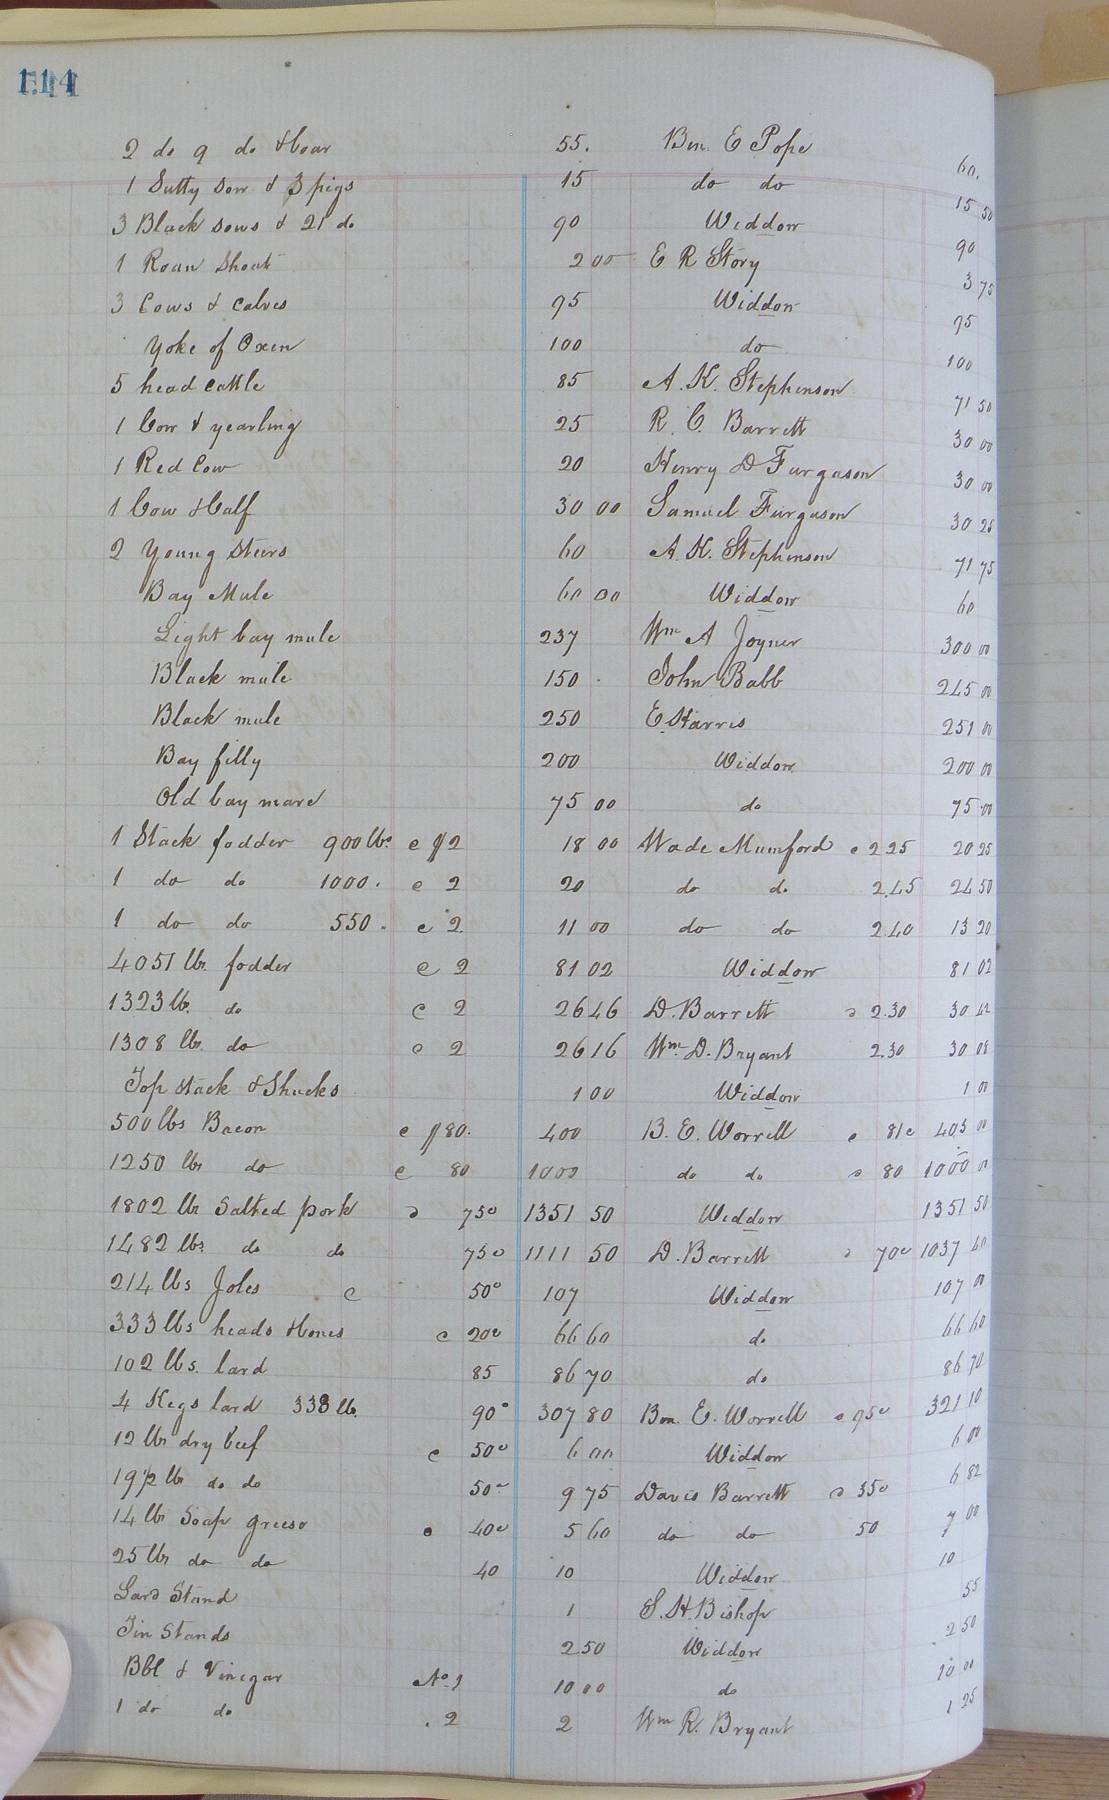 114
2 do 9 do & boar 55. Ben. E Pope 60.
1 Sutty Sow & 3 pigs 15 do do 15 50
3 Black sows & 21 do 90 Widdow 90
1 Roan Shoat 2 00 E R Story 3 75
3 Cows & Calves 95 Widdow 95
Yoke of Oxen 100 do 100
5 head Cattle 85 A. K. Stephenson 71 50
1 Cow & yearling 25 R. C. Barrett 30 00
1 Red Cow 20 Henry D Furgason 30 00
1 Cow & Calf 30 00 Samuel Furgason 30 25
2 Young Steers 60 A. K. Stephenson 71 75
Bay Mule 60 00 Widdow 60
Light bay mule 237 Wm A Joyner 300 00
Black mule 150 John Babb 245 00
Black mule 250 E. Harris 251 00
Bay filly 200 Widdow 200 00
Old bay mare 75 00 do 75 00
1 Stack fodder 900 lbs @ $2 18 00 Wade Mumford @ 2 25 20 25
1 do do 1000. @ 2 20 do do 2.45 24 50
1 do do 550. @ 2. 11 00 do do 2.40 13 20
4051 lbs. fodder @ 2 81 02 Widdow 81 02
1323 lb. do @ 2 26 46 D. Barrett @ 2.30 30 42
1308 lbs. do @ 2 26 16 Wm. D. Bryant 2.30 30 08
Top stack & Shucks 1 00 Widdow 1 00
500 lbs Bacon @ $80. 400 B. E. Worrell @ 81c 405 00
1250 lbs do @ 80 1000 do do @ 80 1000 00
1802 lbs Salted pork @ 75c 1351 50 Widdow 1351 50
1482 lbs. do do 75c 1111 50 D. Barrett @ 70c 1037 40
214 lbs Joles @ 50c 107 Widdow 107 00
333 lbs heads & bones @ 20c 66 60 do 66 60
102 lbs. lard 85 86 70 do 86 70
4 Kegs lard 338 lb. 90c 307 80 Ben. E. Worrell @ 95c 321 10
12 lbs dry beef @ 50c 6 00 Widdow 6 00
19½ lb do do 50c 9 75 Davis Barrett @ 35c 6 82
14 lbs Soap greese @ 40c 5 60 do do 50 7 00
25 lbs do do 40 10 Widdow 10
Lard Stand 1 S. H. Bishop 55
Tin Stands 2 50 Widdow 2 50
Bbl & Vinegar No. 1 10 00 do 10 00
1 do do . 2 2 Wm R. Bryant 1 25